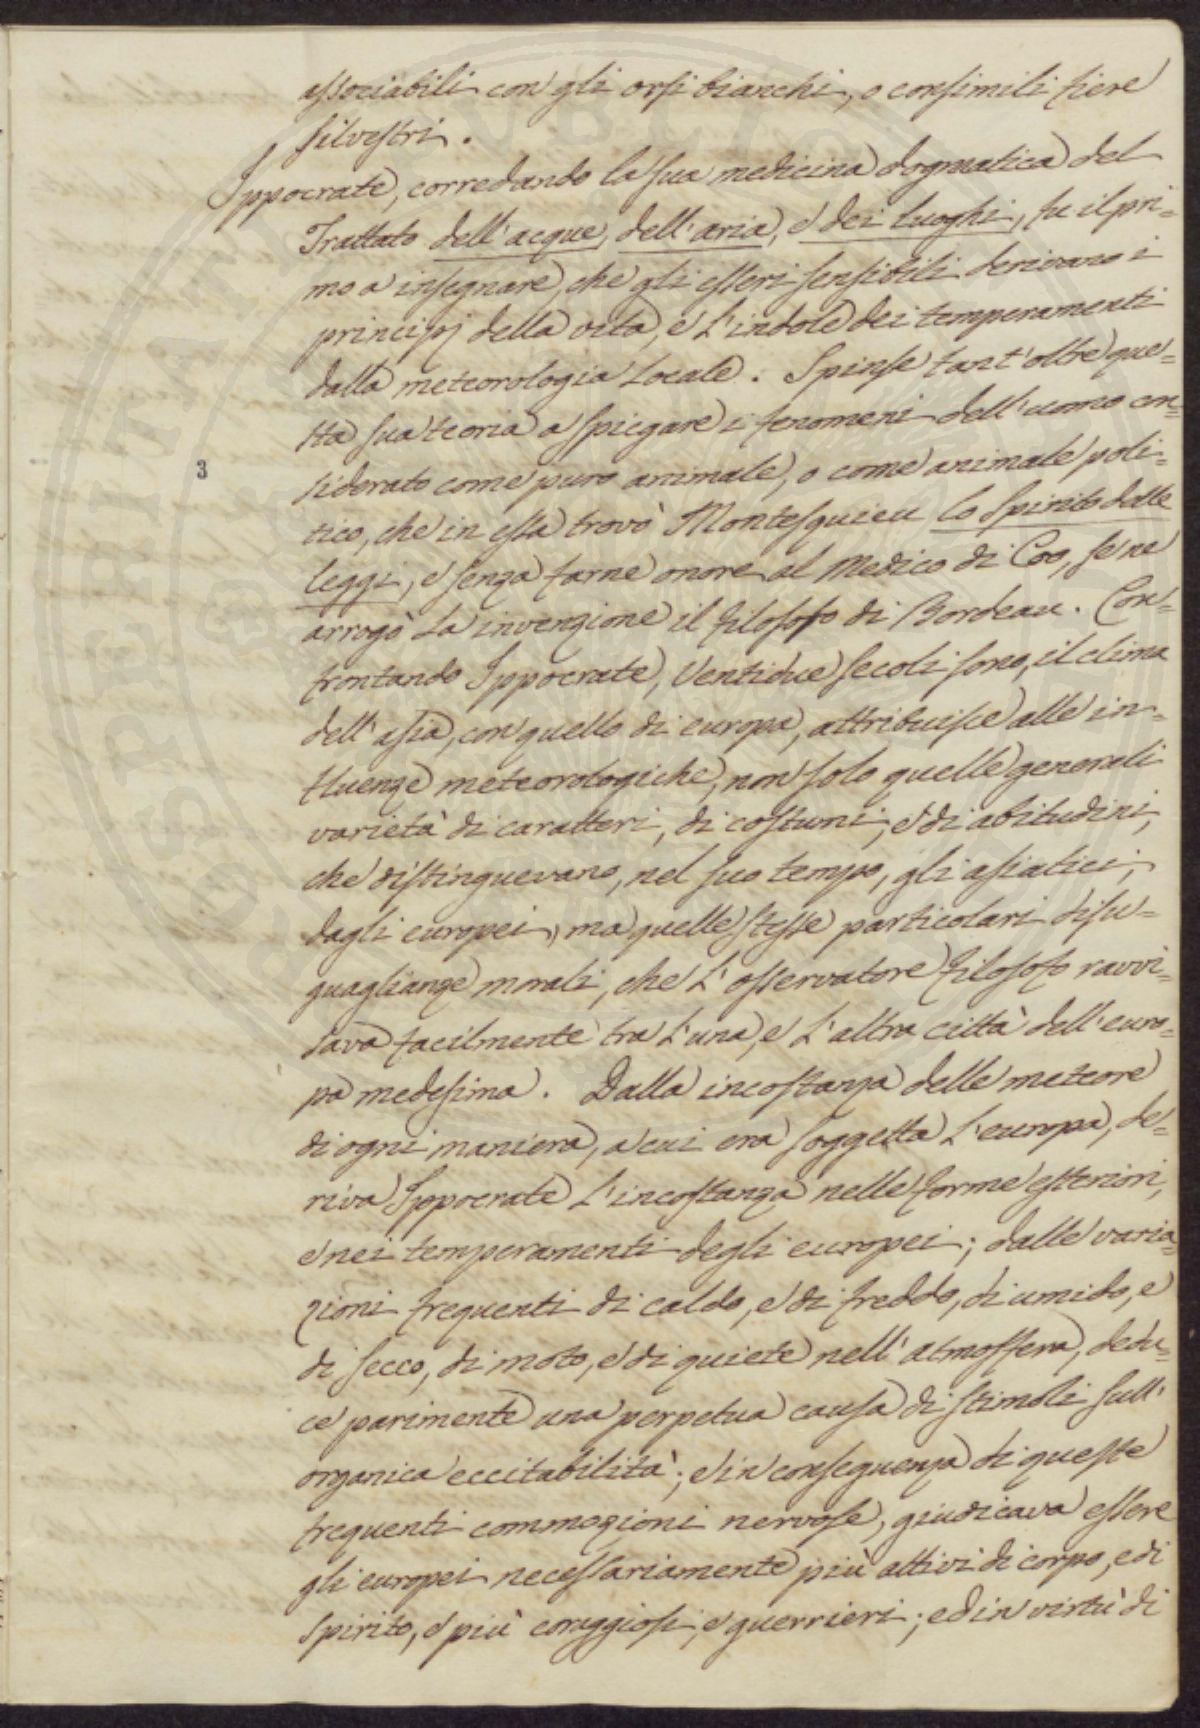 associabili con gli orsi bianchi, o consimili fiere
silvestri.
Ippocrate, corredando la sua medicina dogmatica del
Trattato dell'acque, dell'aria, e dei luoghi, fu il pri=
mo a insegnare, che gli esseri sensibili derivano i
principj della vita, e l'indole dei temperamenti
dalla meteorologia locale. Spinse tant'oltre que=
sta sua teoria a spiegare i fenomeni dell'uomo con=
siderato come puro animale, o come animale poli=
3
tico, che in essa trovò Montesquieu lo Spirito delle
leggi, e senza farne onore al Medico di Coo, se ne
arrogò la invenzione il filosofo di Bordeau. Con=
frontando Ippocrate, Ventidue secoli sono, il clima
dell'asia, con quello di europa, attribuisce alle in=
fluenze meteorologiche, non solo quelle generali
varietà di caratteri, di costumi, e di abitudini,
che distinguevano, nel suo tempo, gli asiatici,
dagli europei, ma quelle stesse particolari disu=
guaglianze morali, che l'osservatore filosofo ravvi=
sava facilmente tra l'una, e l'altra città dell'euro=
pa medesima. Dalla incostanza delle meteore
di ogni maniera, a cui era soggetta l'europa, de=
riva Ippocrate l'incostanza nelle forme esteriori,
e nei temperamenti degli europei; dalle varia=
zioni frequenti di caldo, e di freddo, di umido, e
di secco, di moto, e di quiete nell'atmosfera, dedu=
ce parimente una perpetua causa di stimoli sull'
organica eccitabilità; e in conseguenza di queste
frequenti commozioni nervose, giudicava essere
gli europei necessariamente più attivi di corpo, e di
spirito, e più coraggiosi, e guerrieri; ed in virtù di